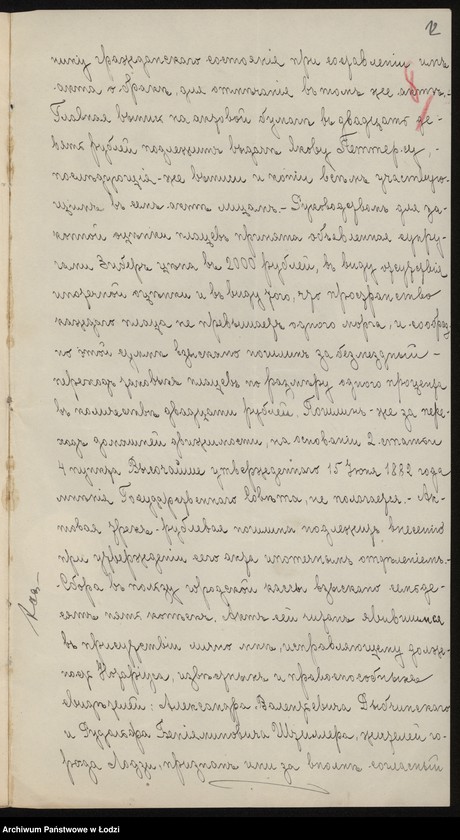 12
нику гражданскаго состоянія при составленіи имъ
акта о бракѣ, для отмѣтки въ томъ же актѣ.-
Главная выпись на гербовой бумагѣ въ двадцать де-
вять рублей подлежитъ выдачѣ Якову Геттер.у, -
послѣдующія-же выписи и копіи всѣмъ участвую-
щимъ въ семъ актѣ лицамъ.- Руководствомъ для за-
конной оцѣнки плацевъ принята объявленная супру-
гами Зиберъ цѣна въ 2000 рублей, въ виду отсутствія
ипотечной оцѣнки и въ виду того, что пространство
каждаго плаца не превышаетъ одного морга, и сообраз-
но этой суммѣ взыскано пошлинъ за безмездный -
переходъ таковыхъ плацевъ по размѣру одного процента
въ количествѣ двадцати рублей. Пошлинъ-же за пере-
ходъ домашней движимости, на основаніи 2 статьи
4 пункта Высочайше утвержденнаго 15 Іюня 1882 года
мнѣнія Государственнаго Совѣта, не полагается.- Ак-
товая трехъ-рублевая пошлина подлежитъ внесенію
при утвержденіи сего акта ипотечнымъ отдѣленіемъ.-
Сбора въ пользу городской кассы взыскано семьде-
сятъ пять копѣекъ. Актъ сей читанъ явившимся
въ присутствіи моемъ, исправляющаго долж-
ность Нотаріуса, извѣстныхъ и правоспособныхъ
свидѣтелей: Александра Валентьевича Дыбчинскаго
и Рудольфа Беніаминовича Шиллера, жителей го-
рода Лодзи, признанъ ими за вполнѣ согласный
Archiwum Państwowe w Łodzi